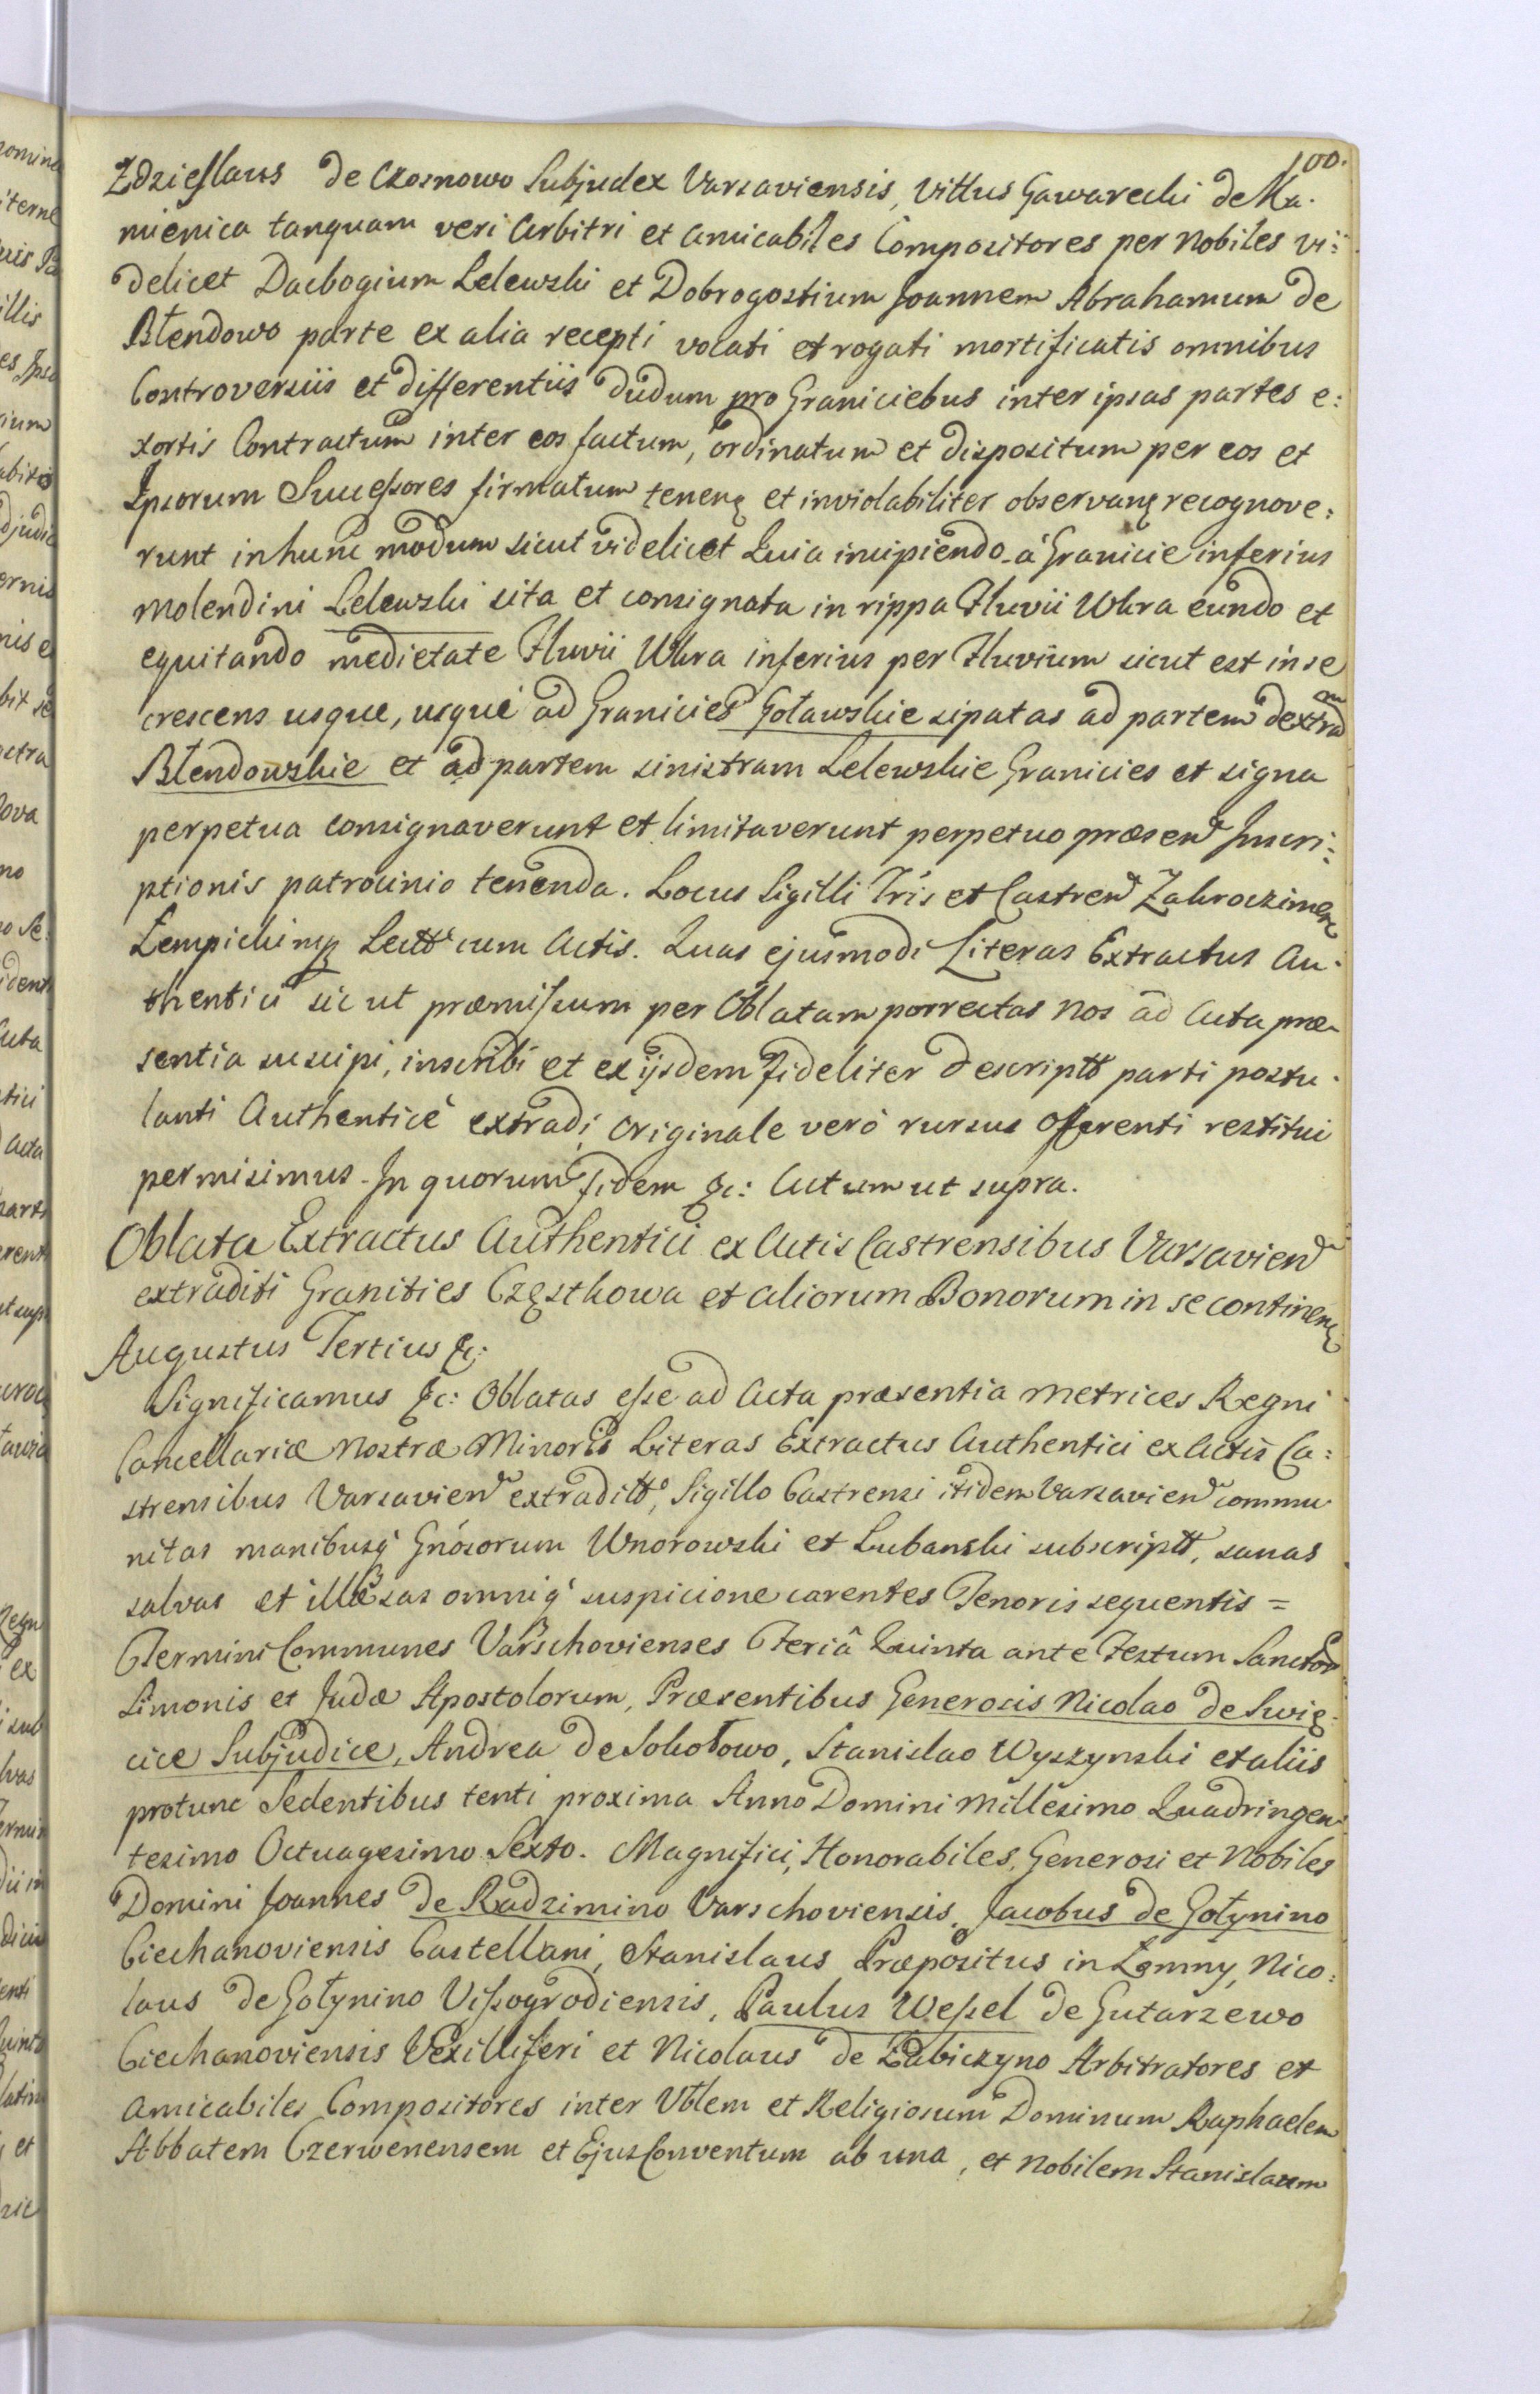 100.
Zdzieslaus de Czosnowo Subjudex Varsaviensis, Vittus Gawarecki de Ka-
mienica tanquam veri Arbitri et Amicabiles Compositores per Nobiles vi:
delicet Dacbogium Lelewski et Dobrogostium Joannem Abrahamum de
Błendowo parte ex alia recepti vocati et rogati mortificatis omnibus
Controversiis et differentiis dudum pro Graniciebus inter ipsas partes e:
xortis Contractum inter eos factum, ordinatum et dispositum per eos et
Ipsorum Successores firmatum tenenȩ et inviolabiliter observanȩ recognove:
runt in hunc modum sicut videlicet Quia incipiendo à Granicie inferius
Molendini Lelewski sita et consignata in rippa Fluvii Wkra eundo et
equitando medietate Fluvii Wkra inferius per Fluvium sicut est in se
crescens usque, usque ad Granicies Goławskie sipatas ad partem dextram
Błendowskie et ad partem sinistram Lelewskie Granicies et signa
perpetua consignaverunt et limitaverunt perpetuo præsen Inscri:
ptionis patrocinio tenenda. Locus Sigilli Tris et Castren Zakroczimen
Łempicki mp Lectt cum Actis. Quas ejusmodi Literas Extractus Au-
thentici sicut præmissum per Oblatam porrectas Nos ad Acta præ
sentia suscipi, inscribi et ex ijsdem fideliter descriptt parti postu-
lanti Authenticè extradi, Originale verò rursus Offerenti restitui
permisimus. In quorum fidem &c: Actum ut supra.
Oblata Extractus Authentici ex Actis Castrensibus Varsavien
extraditi Granities Częstkowa et aliorum Bonorum in se continenȩ
Augustus Tertius &c:
Significamus &c: Oblatas esse ad Acta præsentia Metrices Regni
Cancellariæ Nostræ Minoris Literas Extractus Authentici ex Actis Ca:
strensibus Varsavien extraditt, Sigillo Castrensi itidem Varsavien commu
nitas manibusq Gnósorum Wnorowski et Lubanski subscriptt, sanas
salvas et illæsas omniq suspicione carentes Tenoris sequentis =
Termini Communes Varschovienses Feriâ Quinta ante Festum Sanctor
Simonis et Judæ Apostolorum, Præsentibus Generosis Nicolao de Swię-
cice Subjudice, Andrea de Sokołowo, Stanislao Wyszynski et aliis
protunc Sedentibus tenti proxima Anno Domini Millesimo Quadringen
tesimo Octuagesimo Sexto. Magnifici, Honorabiles, Generosi et Nobiles
Domini Joannes de Radzimino Varschoviensis, Jacobus de Gołynino
Ciechanoviensis Castellani, Stanislaus Præpositus in Łomny, Nico:
laus de Gołynino Vissogrodiensis, Paulus Wessel de Gutarzewo
Ciechanoviensis Vexilliferi et Nicolaus de Zabiczyno Arbitratores et
Amicabiles Compositores inter Vblem et Religiosum Dominum Raphaelem
Abbatem Czerwenensem et Ejus Conventum ab una, et Nobilem Stanislaum